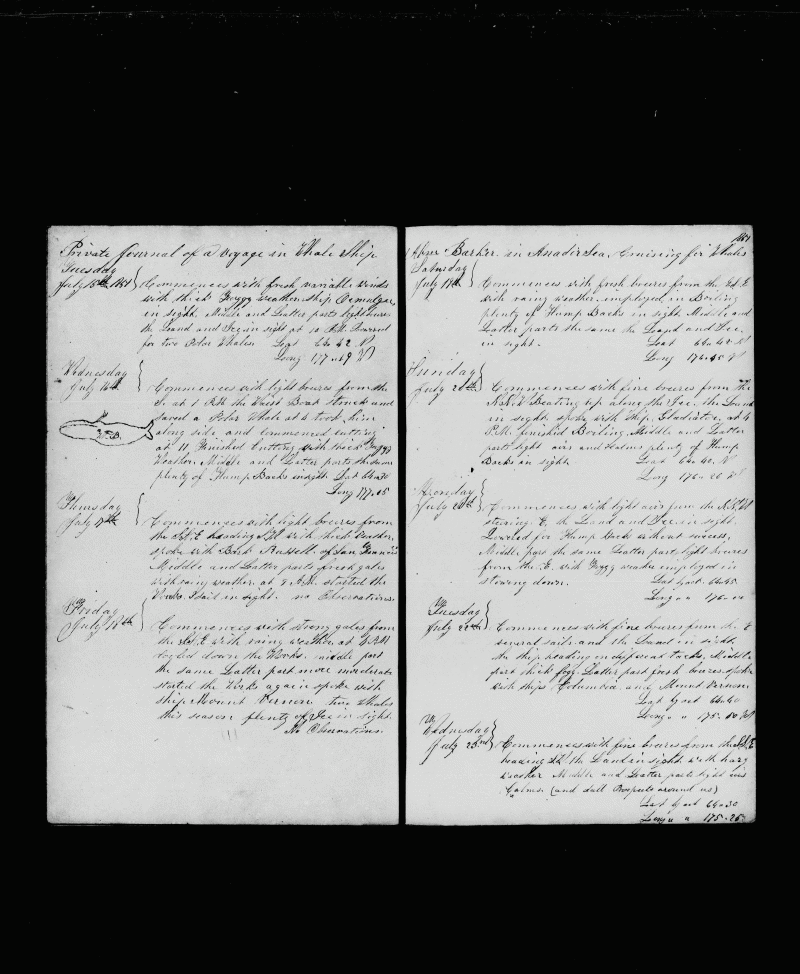 Private Journal of a Voyage in Whale Ship
Tuesday
July 15th 1851 Commences with fresh variable winds
with thick foggy weather ship
in sight. Middle and Latter parts light breeze
the Land and Ice in sight at 10 P.M. Lowered
for two Polar Whales. Lat 64.. 42 N
Long 177..49 W
Wednesday
July 16th Commences with light breezes from the
S. at 1 P.M the Waist Boat struck and
saved a Polar Whale at 4 took him
along side and commenced cutting
W.B.
at 11 Finished Cutting with thick Foggy
Weather. Middle and Latter parts the same
plenty of Hump Backs in sight Lat 64..30
Long 177..15
Thursday
July 17th Commences with light breezes from
the heading with thick weather
spoke with Bark Russell of San Francisco
Middle and Latter parts fresh gales
with rainy weather. at started the
Works. 1 sail in sight. no Observations.
Friday
July 18th Commences with strong gales from
the S.E with rainy weather, at 4 P.M
cooled down the Works. middle part
the same Latter part more moderate
started the Works again spoke with
ship Mount Vernon two Whales
this season plenty of Ice in sight.
No Observations.
1851
Abm Barker in Anadir Sea, Cruising for Whales
Saturday
July 19th Commences with fresh breezes from the S.E
with rainy weather. employed in Boiling
plenty of Hump Backs in sight Middle and
Latter parts the same the Land and Ice
in sight. Lat 64..42 N
Long 176..45 W
Sunday
July 20th Commences with fine breezes from the
N.N.W Beating up along the Ice. the Land
in sight spoke with Ship Gladiator, at 4
P.M. finished Boiling Middle and Latter
parts light airs and Calms plenty of Hump
Backs in sight Lat 64..40. N
Long 176..20 W
Monday
July 21st Commences with light airs from the
steering E. the Land and Ice in sight.
Lowered for Hump Back without success,
Middle part the same Latter part light breezes
from the E. with Foggy weather employed in
stowing down. Lat by act. 64..45
Long " " 176..00
Tuesday
July 22nd Commences with fine breezes from the E
several sails and the Land in sight.
the ship heading on different tacks, Middle
part thick fog. Latter part fresh breezes. spoke
with ships Columbia and Mount Vernon.
Lat by act 64..40
Long " " 175..50 W
Wednesday
July 23rd Commences with fine breezes from the S.E
heading the Land in sight with hazy
weather Middle and Latter parts light airs
Calms (and dull Prospects around us)
Lat by act 64..30
Long " " 175..25